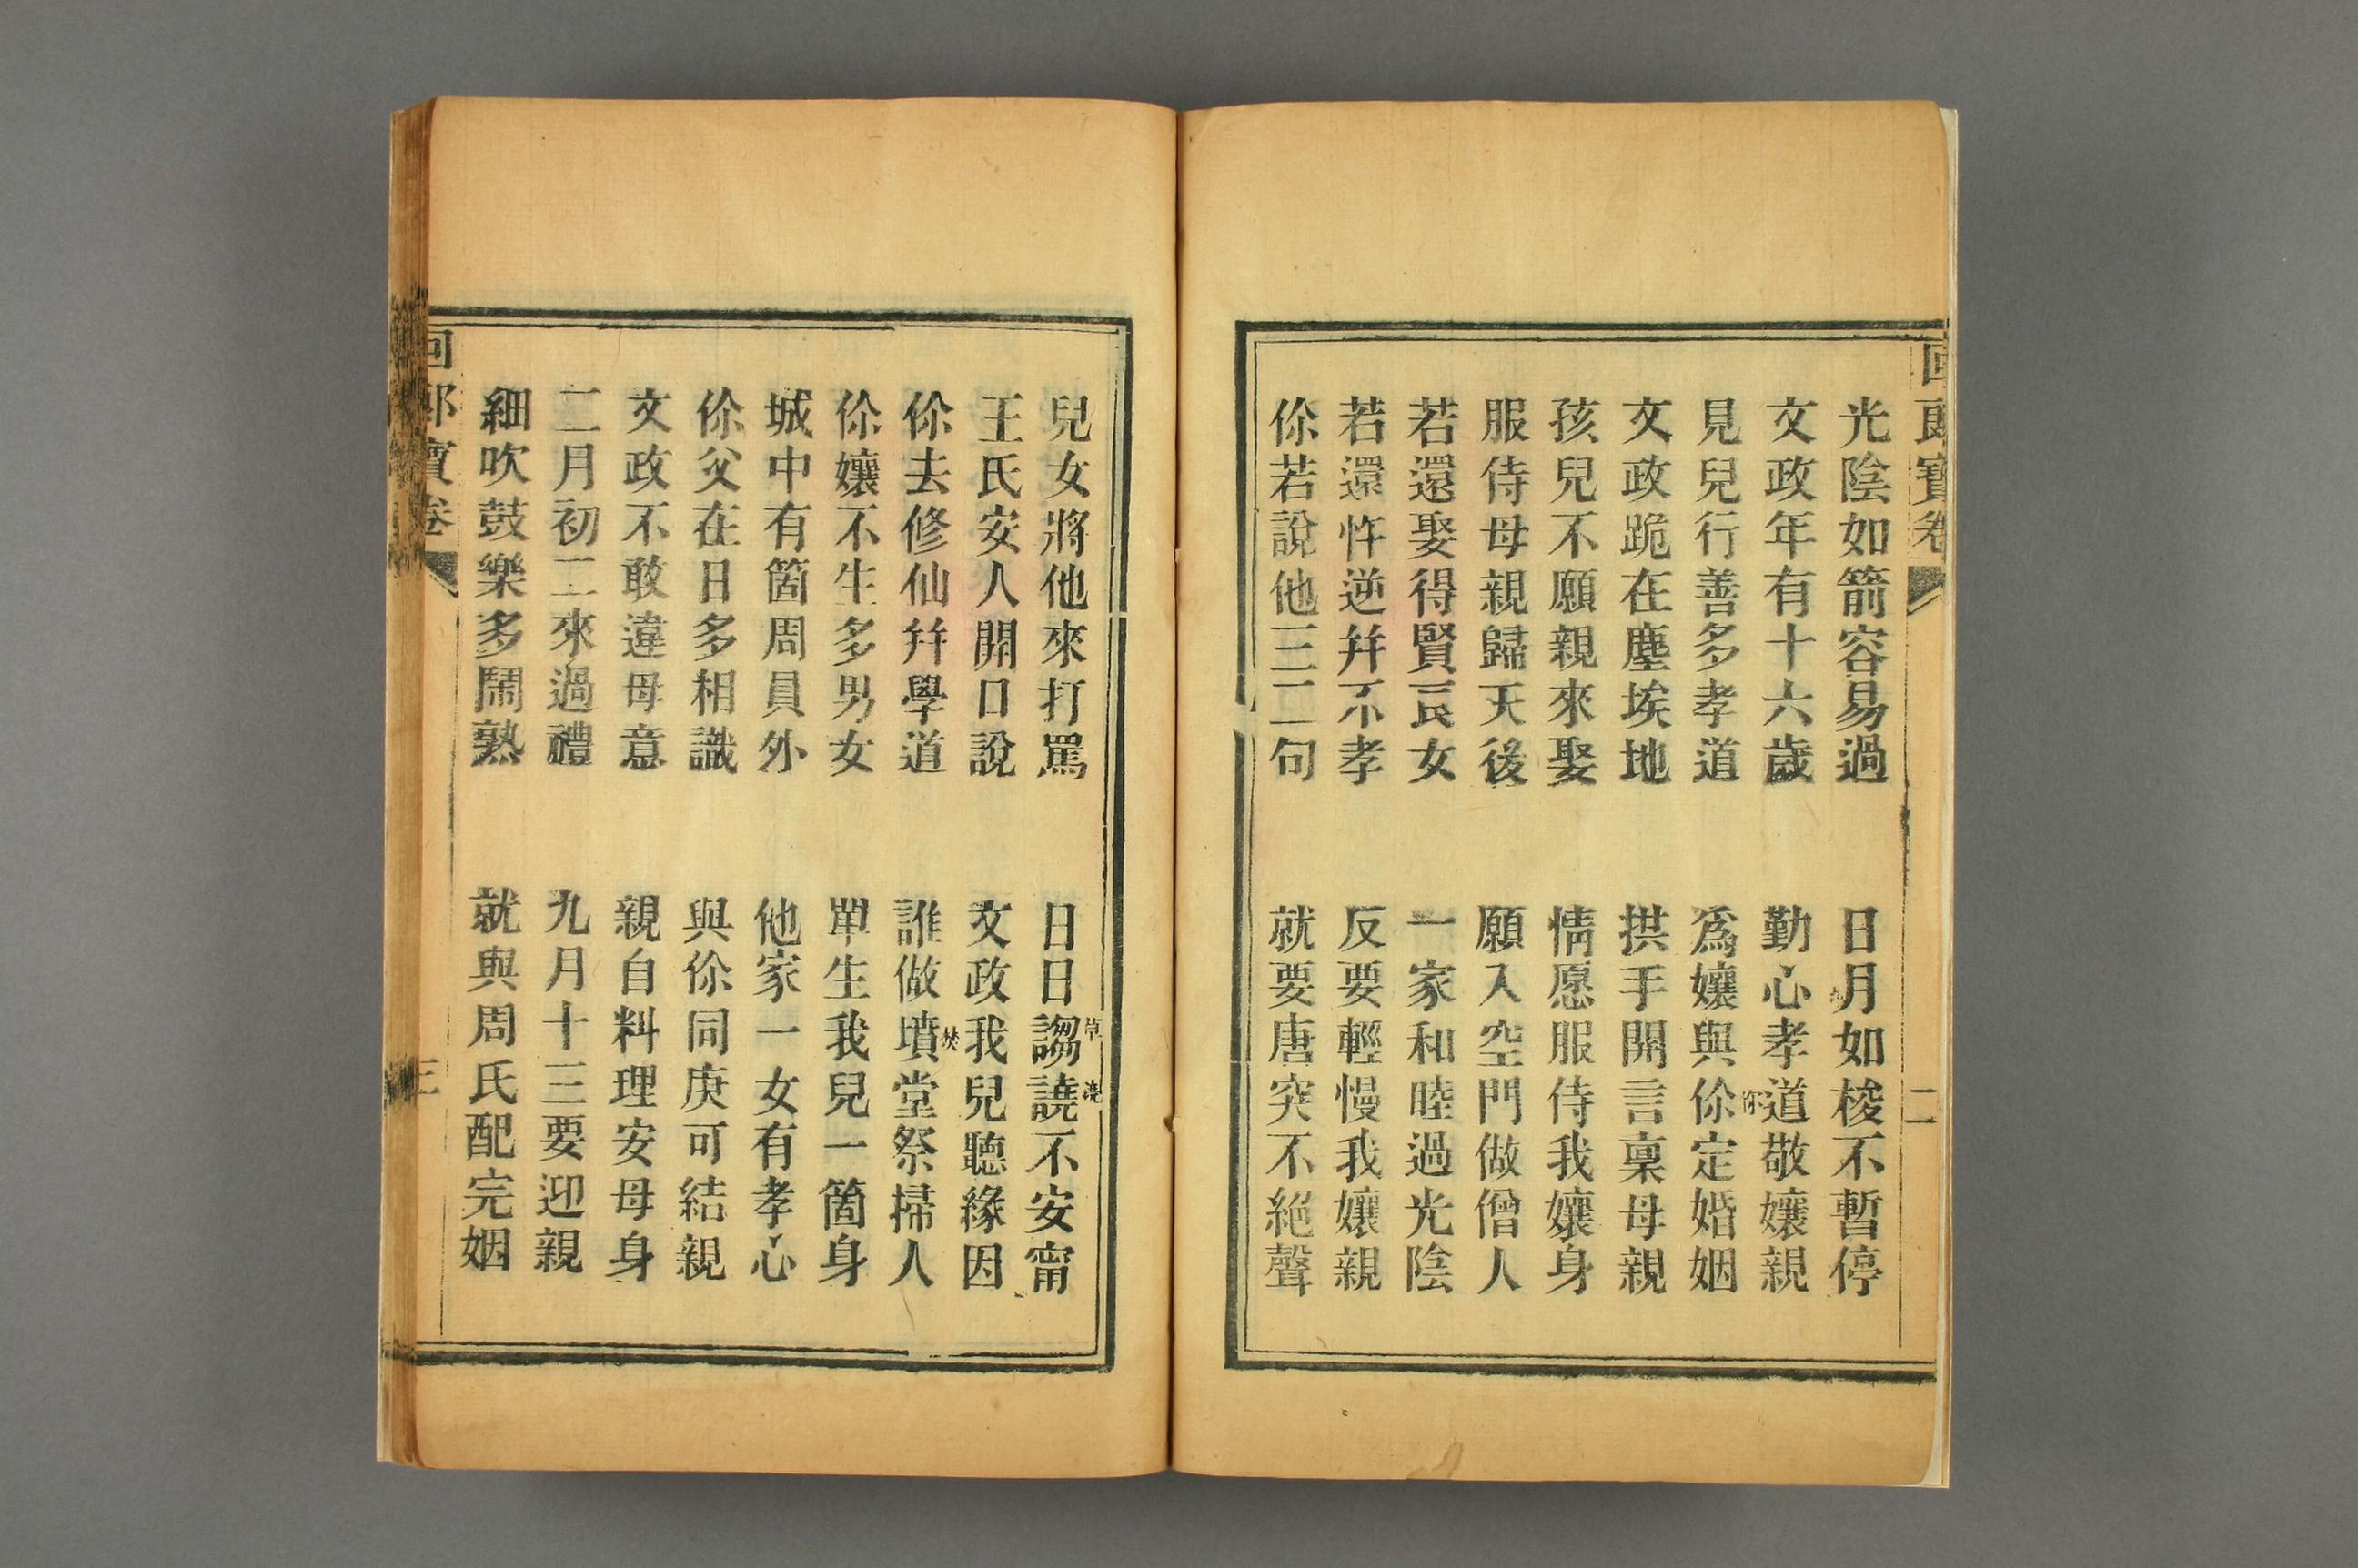 回郎寶卷
二
光陰如箭容易過　日月如梭不暫停
文政年有十六歲　勤心孝道敬孃親
見兒行善多孝道　爲孃與伱定婚姻
你
文政跪在塵埃地　拱手開言稟母親
孩兒不願親來娶　情愿服侍我孃身
服侍母親歸天後　願入空門做僧人
若還娶得賢良女　一家和睦過光陰
若還忤逆幷不孝　反要輕慢我孃親
伱若說他三二句　就要唐突不絕聲
兒女將他來打罵　日日謅譊不安甯
草
澆
王氏安人開口說　文政我兒聽緣因
伱去修仙幷學道　誰做墳堂祭掃人
焚
伱孃不生多男女　單生我兒一箇身
城中有箇周員外　他家一女有孝心
伱父在日多相識　與伱同庚可結親
文政不敢違母意　親自料理安母身
二月初二來過禮　九月十三要迎親
細吹鼓樂多鬧熟　就與周氏配完姻
回郎寶卷
三